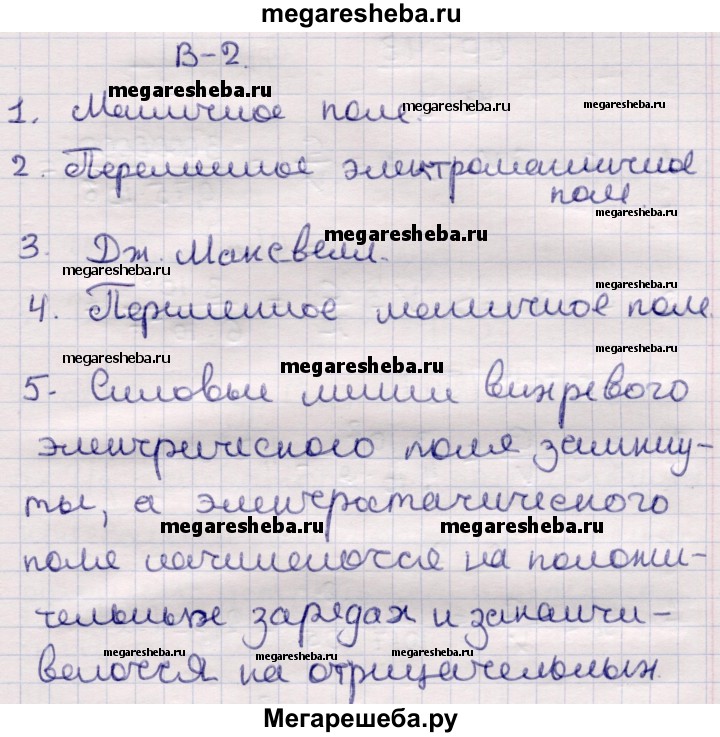 megaresheba.ru
В-2.
megaresheba.ru
1. Магнитное поле.
megaresheba.ru
megaresheba.ru
2. Переменное электромагнитное
поле
megaresheba.ru
megaresheba.ru
3. Дж. Максвелл.
megaresheba.ru
megaresheba.ru
4. Переменное магнитное поле.
megaresheba.ru
megaresheba.ru
megaresheba.ru
5. Силовые линии вихревого
электрического поля замкну-
ты, а электростатического
megaresheba.ru
megaresheba.ru
поля начинаются на положи-
тельных зарядах и заканчи-
ваются на отрицательных.
megaresheba.ru
megaresheba.ru
megaresheba.ru
Мегарешеба.ру